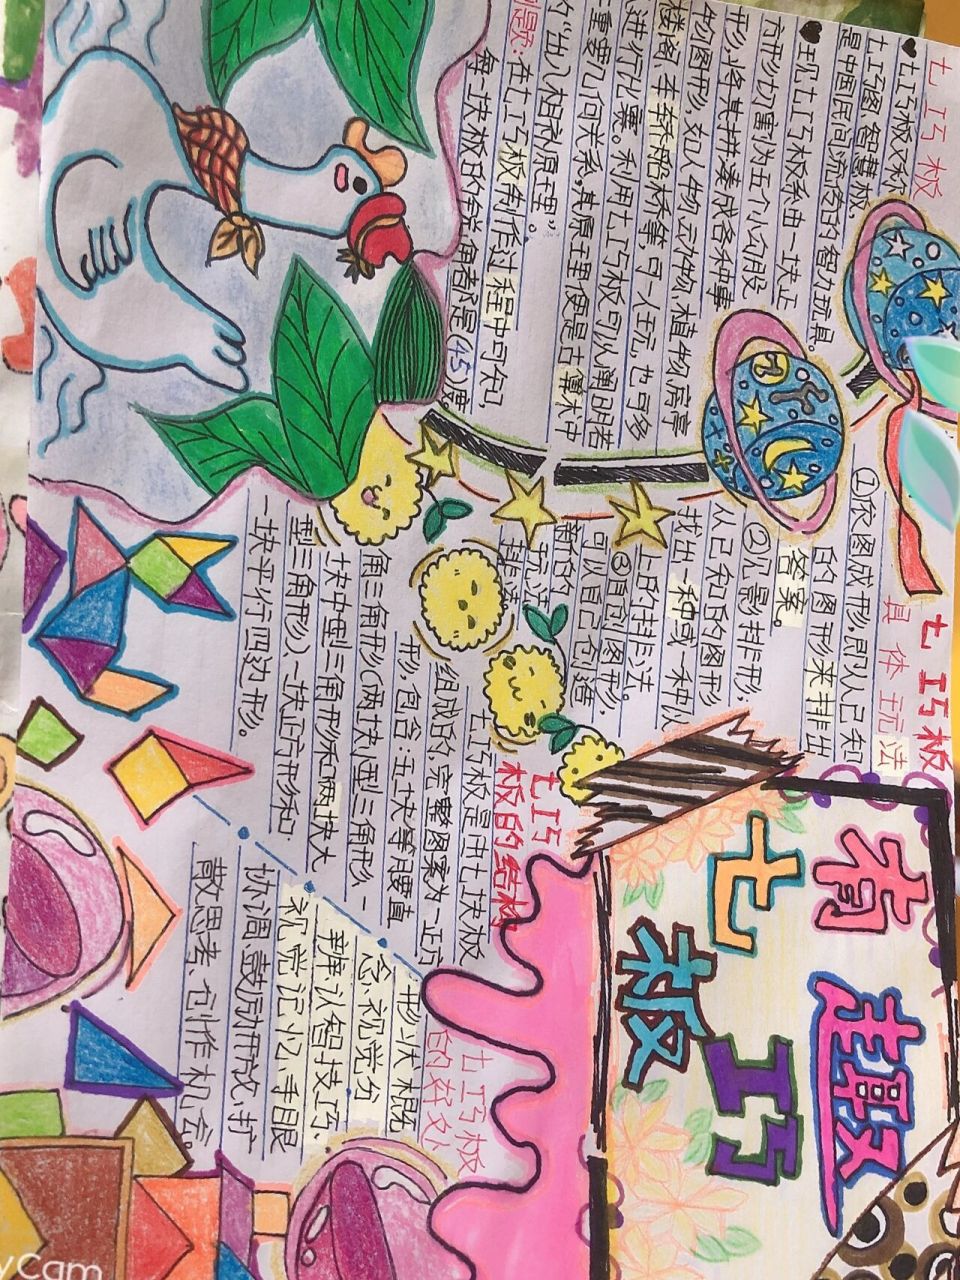 有趣
七巧板
七巧板
♥七巧板又称
七巧图、智慧板,
是中国民间流传的智力玩具
♥现七巧板系由一块正
方形切割为五个小勾股
形,将其拼凑成各种事
物图形,如人物、动植物、房亭
楼阁、车轿船桥等,可一人玩,也可多
进行比赛。利用七巧板可以阐明若
重要几何关系,其原理便是古算术中
的“出入相补原理”。
问题:在七巧板制作过程中可知,
每一块板的锐角都是(45)度
七巧板
具体玩法
①依图成形,即从已知
的图形来排出
答案。
②见影排形,
从已知的图形
找出一种或一种以
上的排法。
③自创图形,
可以自己创造
新的
玩法
排法
七巧
板的结构
七巧板是由七块板
组成的,完整图案为一正方
形,包含:五块等腰直
角三角形(两块小型三角形、一
块中型三角形和两块大
型三角形)、一块正方形和
一块平行四边形。
七巧板
的好处
形状概
念、视觉分
辨、认智技巧、
视觉记忆、手眼
协调、鼓励开放、扩
散思考、创作机会。
yCam